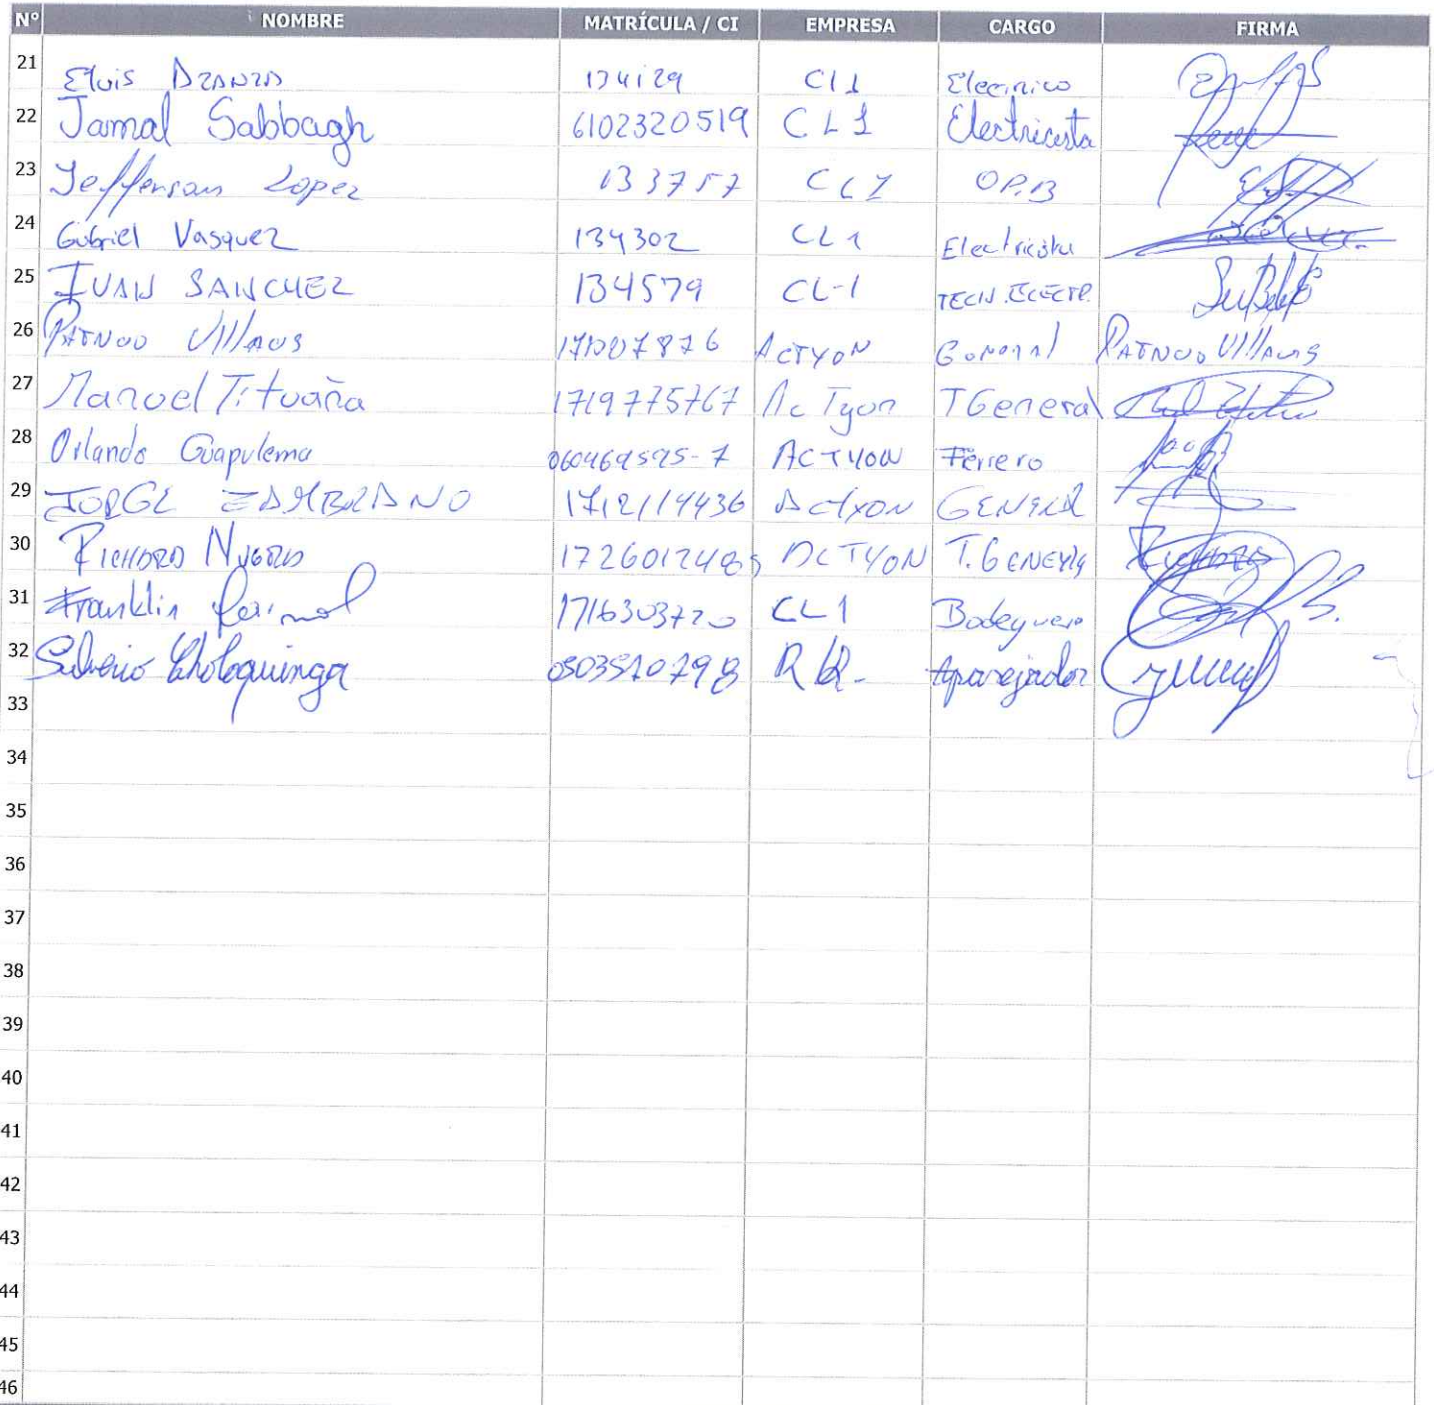 N° NOMBRE MATRÍCULA / CI EMPRESA CARGO FIRMA
21 Elvis 134129 CL1
22 Jamal Sabbagh 6102320519 CL1 Electricista
23 Jefferson Lopez 133757 CL1 OP.B
24 Gabriel Vasquez 134302 CL1 Electricista
25 IVAN SANCHEZ 134579 CL-1 TECN.ELECTR.
26 ACTYON General
27 Manoel Tituaña 1719775767 AcTyon TGeneral
28 Orlando Guapulema 060469595-7 ACTYON Ferrero
29 JORGE ZAMBRANO 1712114436 Actyon GENERAL
30 RICHARD ACTYON T.GENERAL
31 Franklin 1716303720 CL1 Bodeguero
32 Silverio Choloquinga 0503510798 Aparejador
33
34
35
36
37
38
39
40
41
42
43
44
45
46